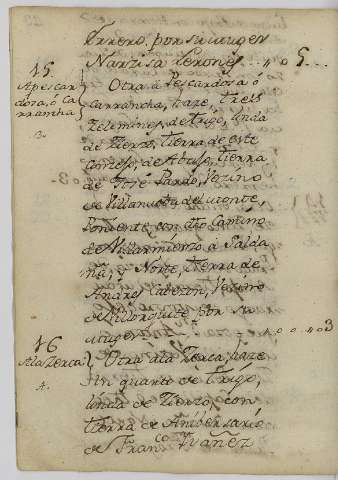 Herrero, por su muger
Narzisa Perones ... 0 0 5 ...
15
Apescar
dosa, ó Ca
rrancha
3.
Otra á Pescardosa ó
Carrancha, haze, tres
Zelemines, de trigo, linda
de Zierzo, tierra de este
Conzejo, de Abrigo, tierra
de José Pardo, Vezino
de Villanueba del monte,
Poniente, con dho Camino
de Villarmienzo á Salda
ña, y Norte, tierra de
Andres Cabezon, Vezino
de Villorquite por su
muger. 0 0 .. 0 3
16
Ala Zerca
4.
Otra ala Zerca, haze
un quarto de trigo,
linda de Zierzo, con
tierra de Anibersario
de Franco Ybañez